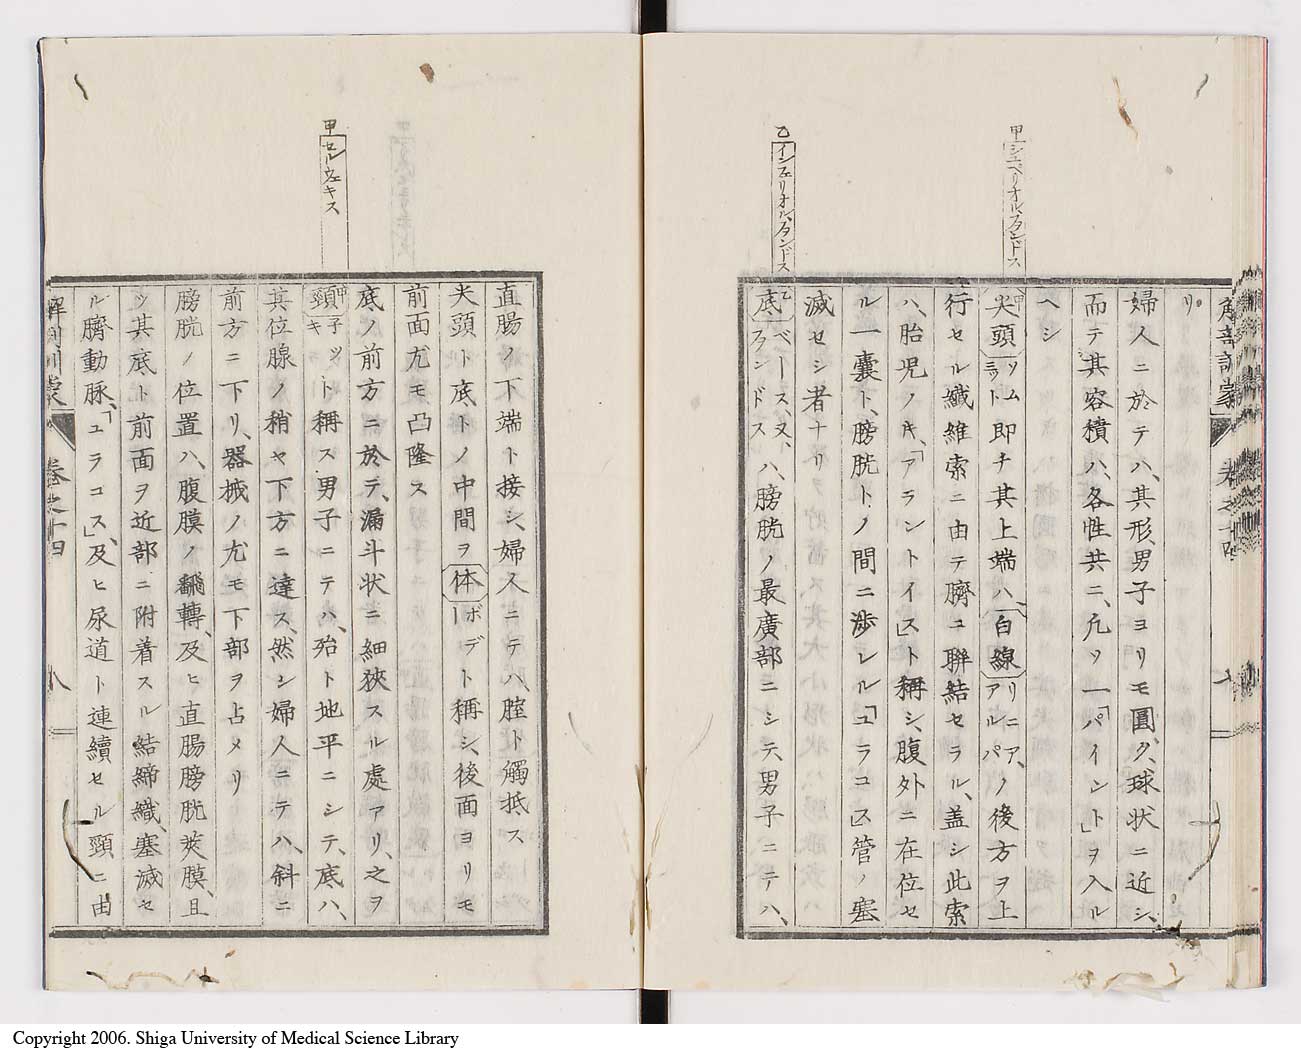 甲シユペリオル、フタンドス
乙インフエリオル、フタンドス
リ
婦人ニ於テハ、其形、男子ヨリモ圓ク、球状ニ近シ、
而テ其容積ハ、各性共ニ、凡ソ一「パイント」ヲ入ル
ヘシ
甲尖頭ソムミット即チ其上端ハ、白線リニア、アルパノ後方ヲ上
行セル纖維索ニ由テ臍ニ聯結セラル、盖シ此索
ハ、胎児ノキ、「アラントイス」ト稱シ、腹外ニ在位セ
ル一囊ト、膀胱トノ間ニ渉レル「ユラコス」管ノ塞
滅セシ者ナリ
乙底ベース、又、フアンドスハ、膀胱ノ最廣部ニシテ、男子ニテハ、
解剖訓蒙 卷之十四
甲セルウエキス
直腸ノ下端ト接シ、婦人ニテハ、腟ト觸抵ス
尖頭ト底、トノ中間ヲ体ボデート稱シ、後面ヨリモ
前面尤モ凸隆ス
底ノ前方ニ於テ、漏斗状ニ細狹スル處アリ、之ヲ
甲頸子ツキト稱ス男子ニテハ、殆ト地平ニシテ、底ハ、
其位腺ノ稍ヤ下方ニ達ス、然シ婦人ニテハ、斜ニ
前方ニ下リ、器械ノ尤モ下部ヲ占メリ
膀胱ノ位置ハ、腹膜ノ飜轉、及ヒ直腸膀胱莢膜、且
ツ其底ト前面ヲ近部ニ附着スル結締織、塞滅セ
ル臍動脉、「ユラコス」、及ヒ尿道ト連續セル頸ニ由
解剖訓蒙 卷之十四 八
Copyright 2006. Shiga University of Medical Science Library